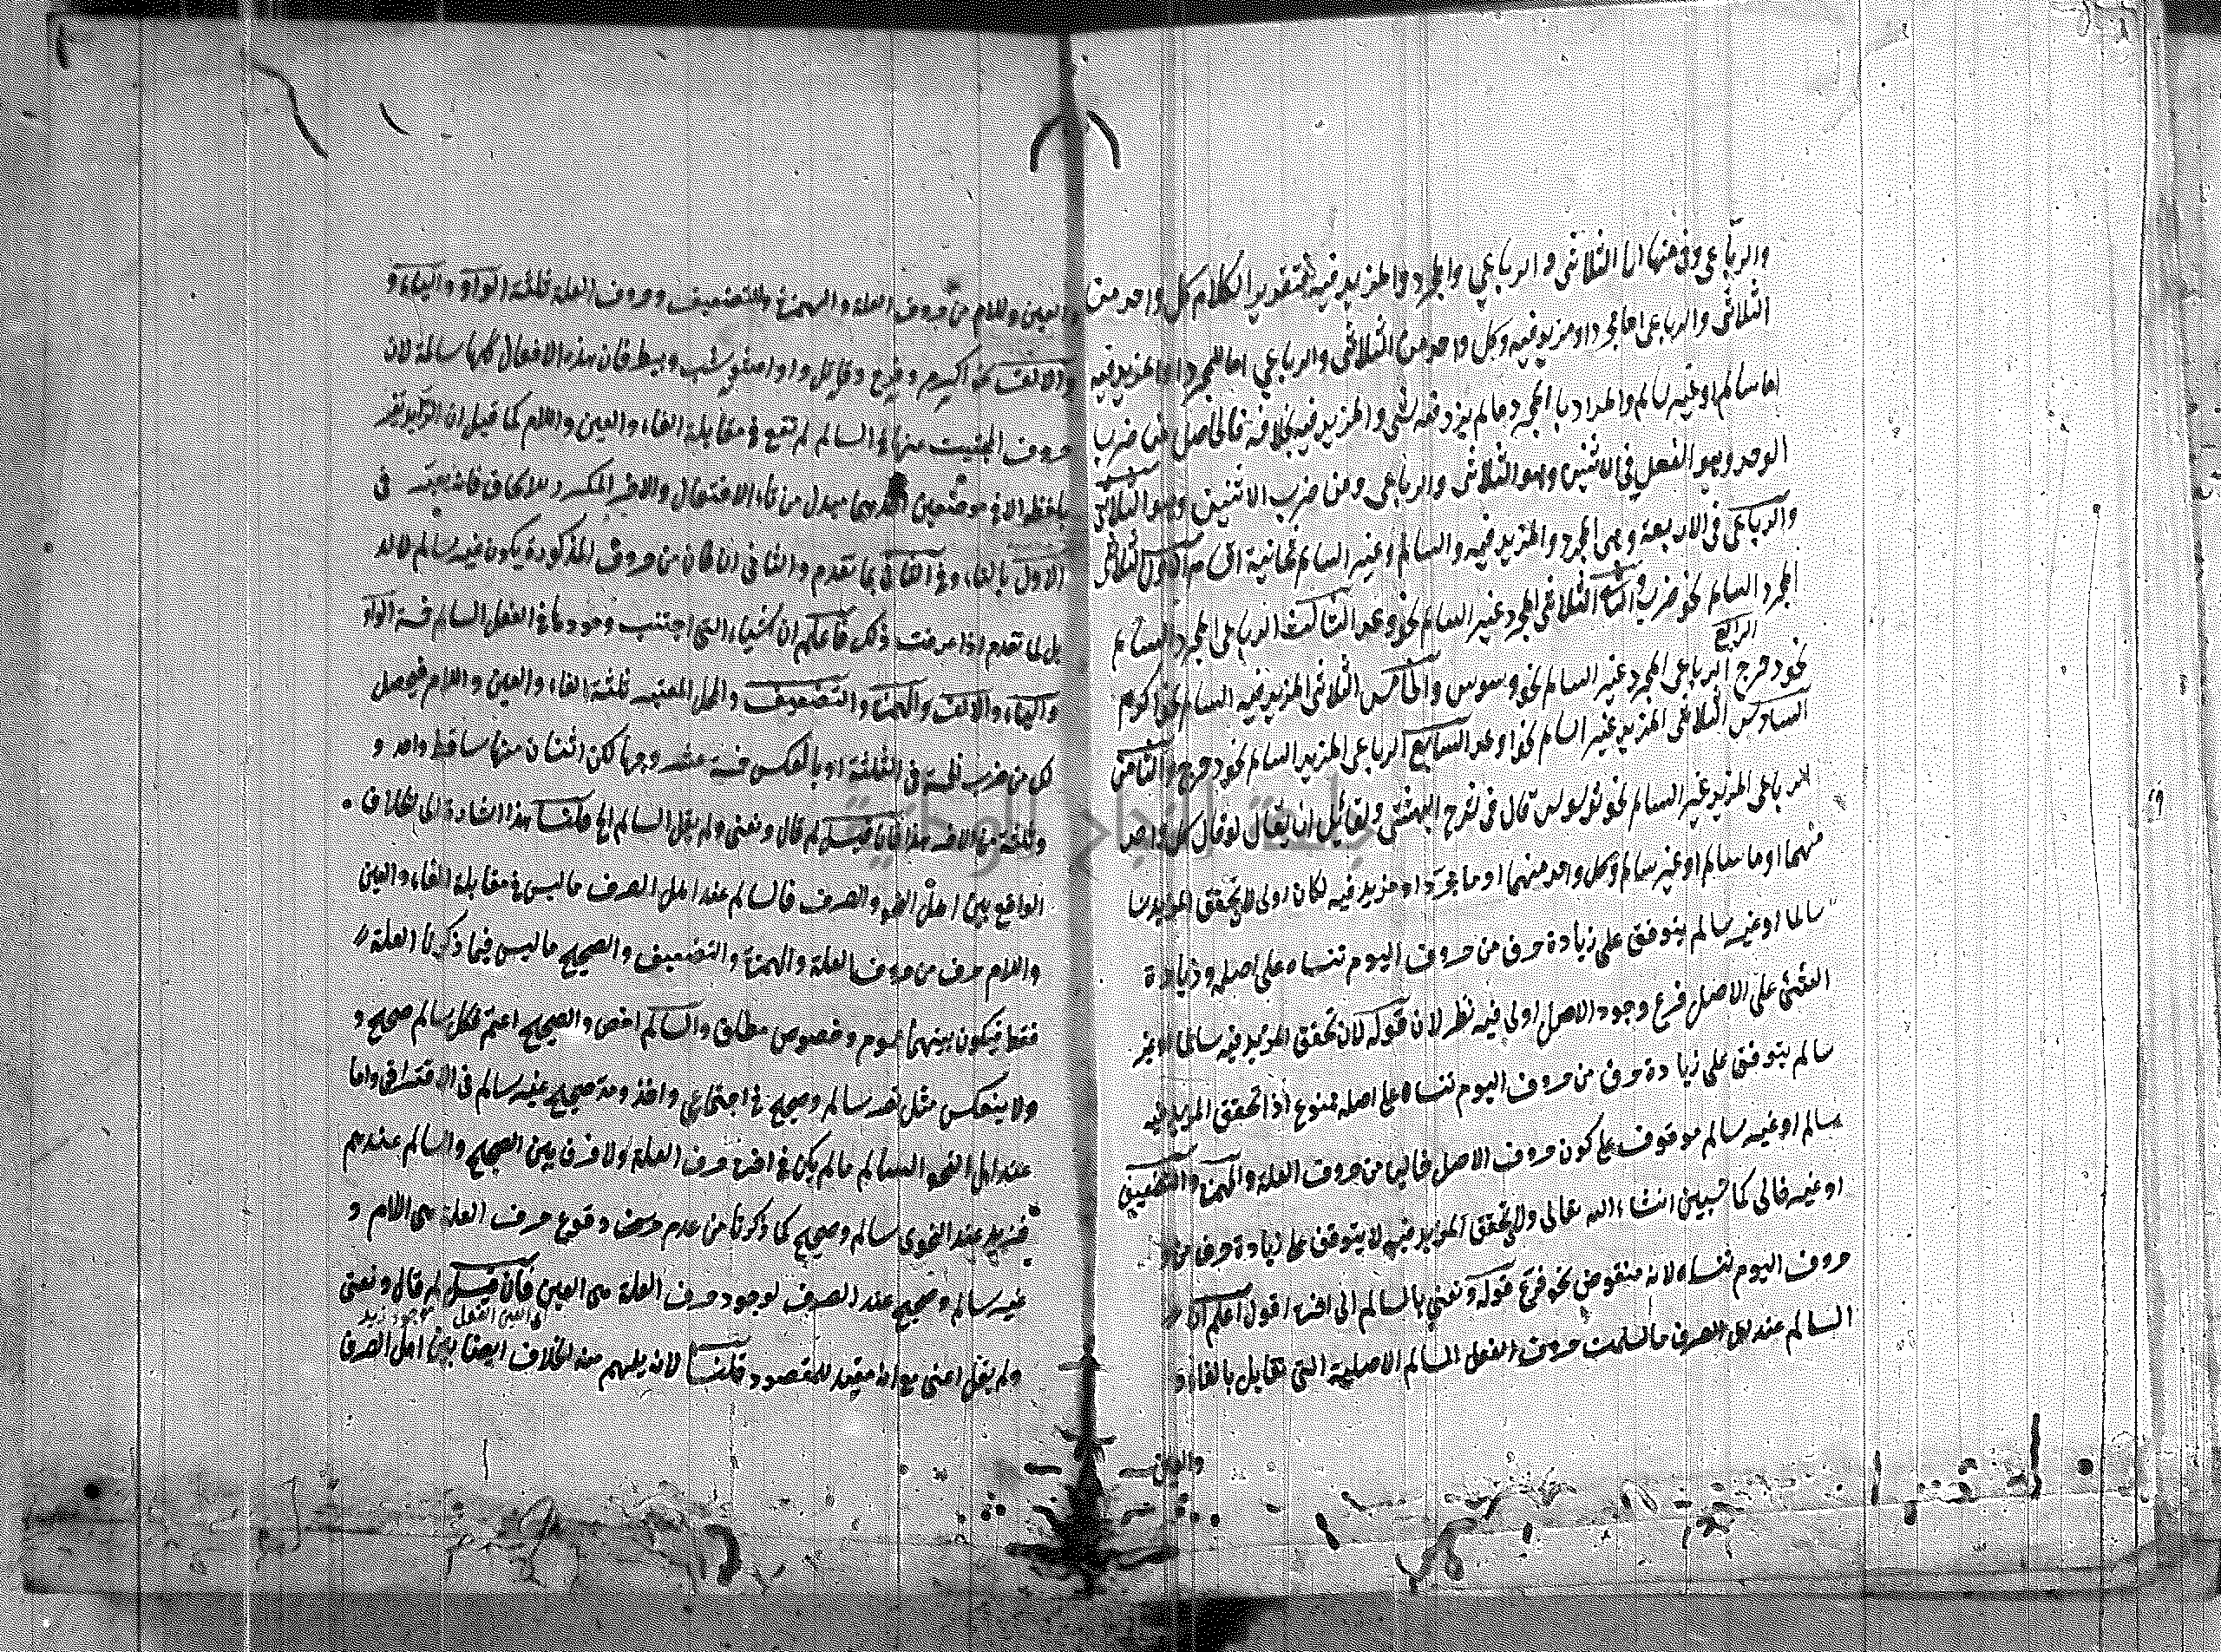 والرباعي وفي منها اما الثلاثي والرباعي والمجرد والمزيد فيه فتقدير الكلام كل واحد من
الثلاثي والرباعي اما مجرد او مزيد فيه وكل واحد من الثلاثي والرباعي اما المجرد اما المزيد فيه
اما سالم او غير سالم والمراد بالمجرد ما لم يزد فيه شئ والمزيد فيه بخلافه فالحاصل من ضرب
الوحد وهو الفعل في الاثنين وهو الثلاثي والرباعي ومن ضرب الاثنين وهو الثلاثي
والرباعي في الاربعة وهي المجرد والمزيد فيه والسالم وغير السالم ثمانية اقسام الاول الثلاثي
المجرد السالم نحو ضرب والثاني الثلاثي المجرد غير السالم نحو وعد الثالث الرباعي المجرد السالم
الرابع
نحو دحرج الرباعي المجرد غير السالم نحو وسوس والخامس الثلاثي المزيد فيه السالم نحو اكرم
السادس الثلاثي المزيد غير السالم نحو اوعد السابع الرباعي المزيد السالم نحو تدحرج والثامن
الرباعي المزيد غير السالم نحو توسوس قال في شرح الهندي ولقائل ان يقال لو قال كل واحد
منهما اما سالم او غير سالم وكل واحد منهما اما مجرد او مزيد فيه لكان اولى لان تحقق المزيد
سالما او غير سالم يتوقف على زيادة حرف من حروف اليوم تنساه على اصله وزيادة
الشئ على الاصل فرع وجود الاصل اولى فيه نظر لان قوله لان تحقق المزيد فيه سالما او غير
سالم يتوقف على زيادة حرف من حروف اليوم تنساه على اصله ممنوع اذ تحقق المزيد فيه
سالم او غير سالم موقوف على كون حروف الاصل خاليا من حروف العلة والهمزة والتضعيف
او غير خالي كما سيبين انشاء الله تعالى ولا تحقق المزيد فيه لا يتوقف على زيادة حرف من
حروف اليوم تنساه لانه منقوض نحو فرح قوله ونعني بالسالم الى اخره اقول اعلم ان
السالم عند اهل الصرف ما سلمت حروف الفعل السالم الاصلية التي تقابل بالفاء و
والعين
والعين واللام من حروف العلة والهمزة والتضعيف وحروف العلة ثلثة الواو والياء و
والالف نحو اكرم وفرح وقاتل واعشوشب وبيطر فان هذه الافعال كلها سالمة لان
حروف اجنبت منها في السالم لم تقع في مقابلة الفاء والعين واللام كما قيل ان الزايد يعبر
بلفظه الا في موضعين احدهما مبدل من تاء الافتعال والاخر المكرر للالحاق فانه يعبر في
الاول بالتاء وفي الثاني بما تقدم والثاني ان كان من حروف المذكورة يكون غير سالم
بل لما تقدم اذا عرفت ذلك فاعلم ان الاشياء التي اجتنب وجودها في الفعل السالم خمسة الواو
والياء والالف والهمزة والتضعيف والمحل المعتبر ثلثة الفاء والعين واللام فيحصل
لك من ضرب خمسة في الثلثة او بالعكس خمسة عشر وجها لكن اثنان منها ساقط واحد و
وثلثة من الالف هذا فان قيل لم قال ونعني ولم يقل السالم الخ قلنا هذا اشارة الى الخلاف
الواقع بين اهل النحو والصرف فالسالم عند اهل الصرف ما ليس في مقابلة الفاء والعين
واللام حرف من حروف العلة والهمزة والتضعيف والصحيح ما ليس فيما ذكرنا العلة
فقط فيكون بينهما عموم وخصوص مطلق والسالم اخص والصحيح اعم فكل سالم صحيح و
ولا ينعكس مثل نصر سالم وصحيح في اجتماعي واخذ ومد صحيح غير سالم في الافتراقي واما
عند اهل النحو السالم ما لم يكن في اخره حرف العلة ولا فرق بين الصحيح والسالم عندهم
فزيد عند النحوي سالم وصحيح كما ذكرنا من عدم وقوع حرف العلة في اللام و
غير سالم وصحيح عند الصرف لوجود حرف العلة في العين فان قيل لم قال ونعني
ولم يقل اعني مع انه مفيد للمقصود قلنا لانه يلهم منه الخلاف ايضا بين اهل الصرف